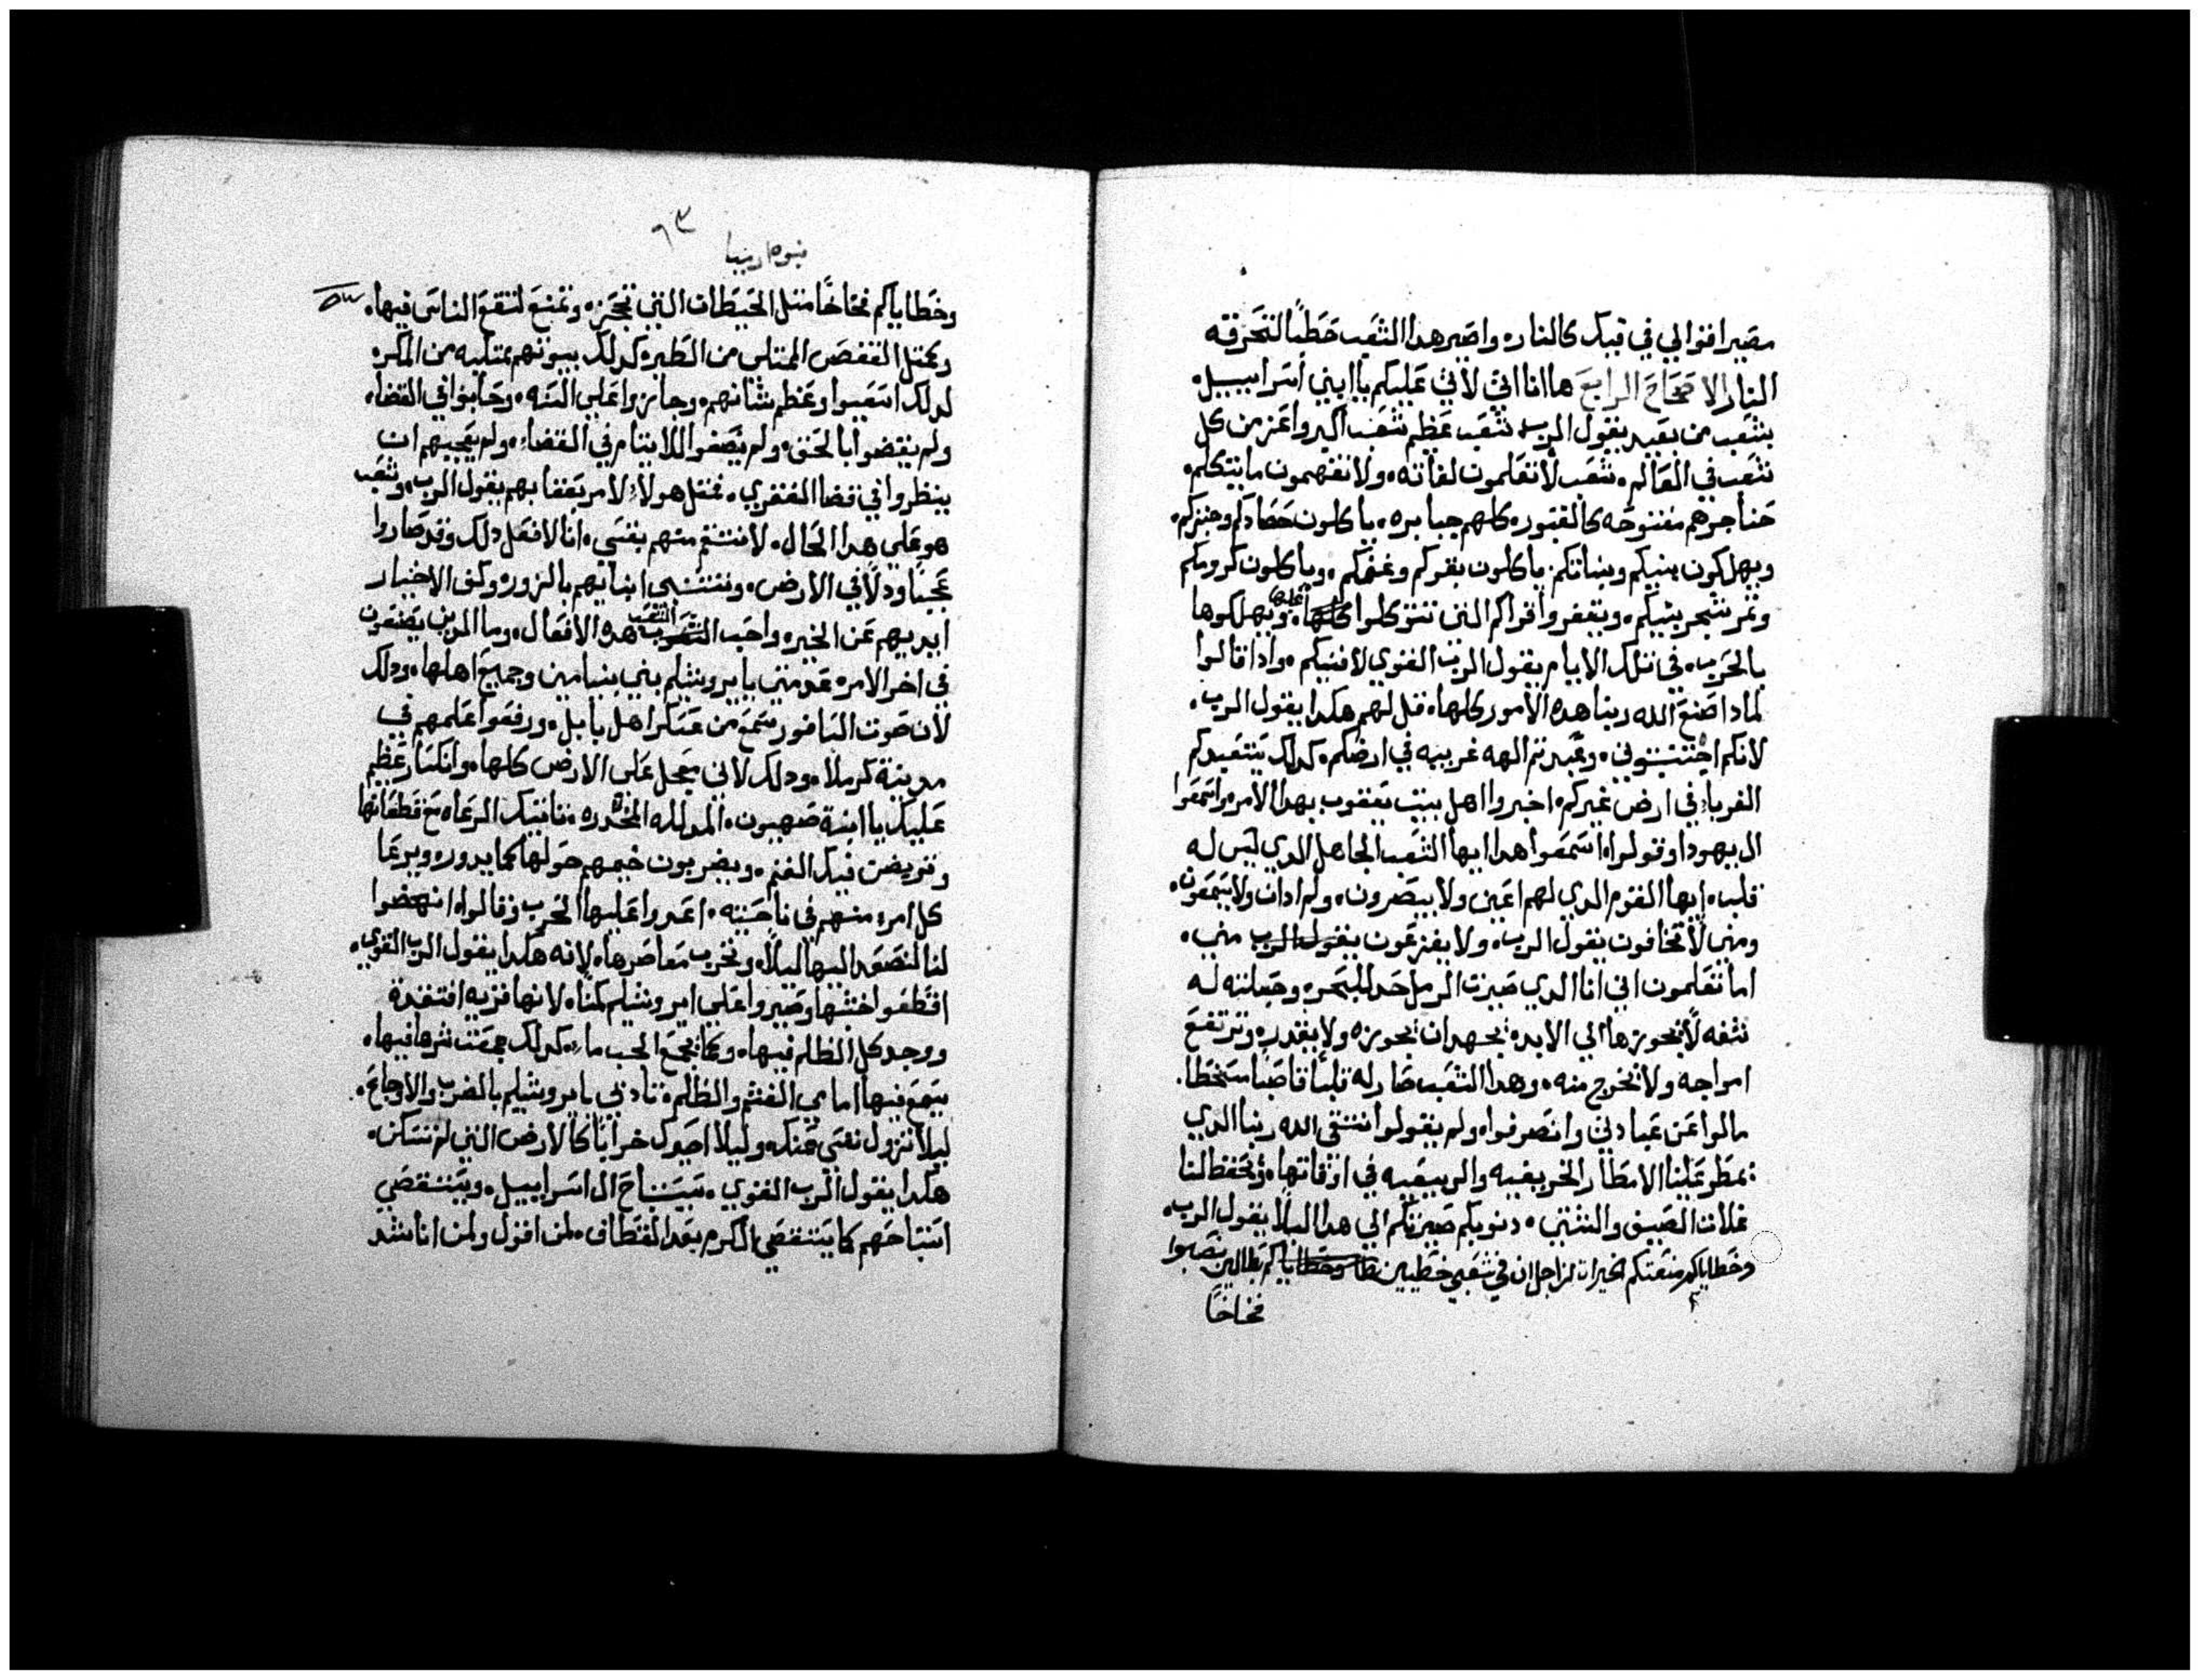 مصير اقوالي في فيك كالنار۰ واصير هدا الشعب حطبًا لتحرقه
النار الاصحاح الرابع هاانا اتي لاتي عليكم ياابني اسراييل۰
بشعب من بعيد يقول الرب شعب عظيم شعب اكبر واعز من كل
شعب في العالم۰ شعب لا تعلمون لغاته۰ ولا تفهمون ما يتكلم۰
حناجرهم مفتوحه كالقبور۰ كلهم جبابره۰ ياكلون حصادكم وخبزكم۰
ويهلكون بنيكم وبناتكم۰ ياكلون بقركم وغنمكم۰ وياكلون كرومكم
وتمر شجر تينكم۰ ويقفروا قراكم التي تتوكلوا عليها۰ ويهلكوها
بالحرب۰ في تلك الايام يقول الرب القوي لا فنيكم۰ وادا قالوا
لمادا صنع الله ربنا هده الامور كلها۰ قل لهم هكدا يقول الرب۰
لانكم اجتنبتوني۰ وعبدتم الهه غريبه في ارضكم۰ كدلك يتعبدكم
الغرباء في ارض غيركم۰ اخبروا اهل بيت يعقوب بهدا الامر۰ واسمعوا
ال يهودا وقولوا۰ اسمعوا هدا ايها الشعب الجاهل الدي ليس له
قلب۰ ايها القوم الدي لهم اعين ولا يبصرون۰ ولهم ادان ولا يسمعون۰
ومني لا تخافون يقول الرب۰ ولا يفزعون يقول الرب مني۰
اما تعلمون اني انا الدي صيرت الرمل حد للبحر۰ وجعلته له
شفه لا يجوزها الي الابد۰ يجهد ان يجوزه ولا يقدر۰ وترتفع
امواجه ولا تخرج منه۰ وهدا الشعب صار له قلبًا قاصبًا سخطا۰
مالوا عن عبادتي وانصرفوا۰ ولم يقولوا نتقي الله ربنا الدي
يمطر علينا الامطار الخريفيه والربيعيه في اوقاتها۰ وتحفظ لنا
غلات الصيف والشتي۰ دنوبكم صيرتكم الي هدا البلا يقول الرب۰
وخطاياكم منعتكم الخيرات من اجل ان في شعبي خطيين نصبوا
فخاخًا
نبوه ارميا
٩٣
وخطاياكم فخاخًا متل الحيطان التي تحجز۰ وتمنع لتقع الناس فيها۰
وكمتل القفص الممتلي من الطير۰ كدلك بيوتهم ممتليه من المكر۰
لدلك استغنوا وعظم شانهم۰ وجازوا علي السنه۰ وحابوا في القضا۰
ولم يقضوا بالحق۰ ولم ينصفوا للايتام في القضاء۰ ولم يعجبهم ان
ينظروا في قضا الفقري۰ فمتل هولاء الامر يفعا بهم يقول الرب۰ وشعب
هو علي هدا الحال۰ لا تنتقم منهم نفسي۰ انا لا فعل دلك وقد صاروا
عجبًا ودلًا في الارض۰ وتتنبي انبايهم بالزور۰ وكف الاخيار
ايديهم عن الخير۰ واحب الشعب هده الافعال۰ وما الدين يصنعون
في اخر الامر۰ عد متي يا يروشليم بني بنيامين وجميع اهلها۰ ودلك
لان صوت الناقور يسمع من عسكر اهل بابل۰ ورفعوا علمهم في
مدينة كرملا۰ ودلك لاني معجل علي الارض كلها۰ وانكسار عظيم
عليك يا ابنة صهيون۰ المدلله المخدره۰ تاتيك الرعاه مع قطعانها
وتريض فيك الغنم۰ ويضربون خيمهم حولها كما يدور۰ ويرعا
كل امرء منهم في ناحيته۰ اعدوا عليها الحرب وقالوا۰ انهضوا
لنا لنصعد اليها ليلًا۰ ونخرب معاصرها۰ لانه هكدا يقول الرب القوي۰
اقطعوا خشبها وصيروا علي ايروشليم كمنا۰ لانها قريه افتقدة
ووجد كل الظلم فيها۰ وكما يجمع الجب ماء۰ كدلك جمعت شرها فيها۰
يسمع فيها امامي الغشم والظلم۰ تادبي يا يروشليم بالضرب والاوجاع۰
ليلا تزول نفسي عنك۰ وليلا اصيرك خرابًا كالارض التي لم تسكن۰
هكدا يقول الرب القوي۰ سيستباح ال اسراييل۰ ويستقصي
استباحهم كما يستقصي الكرم بعد القطاف۰ لمن اقول ولمن اناشد